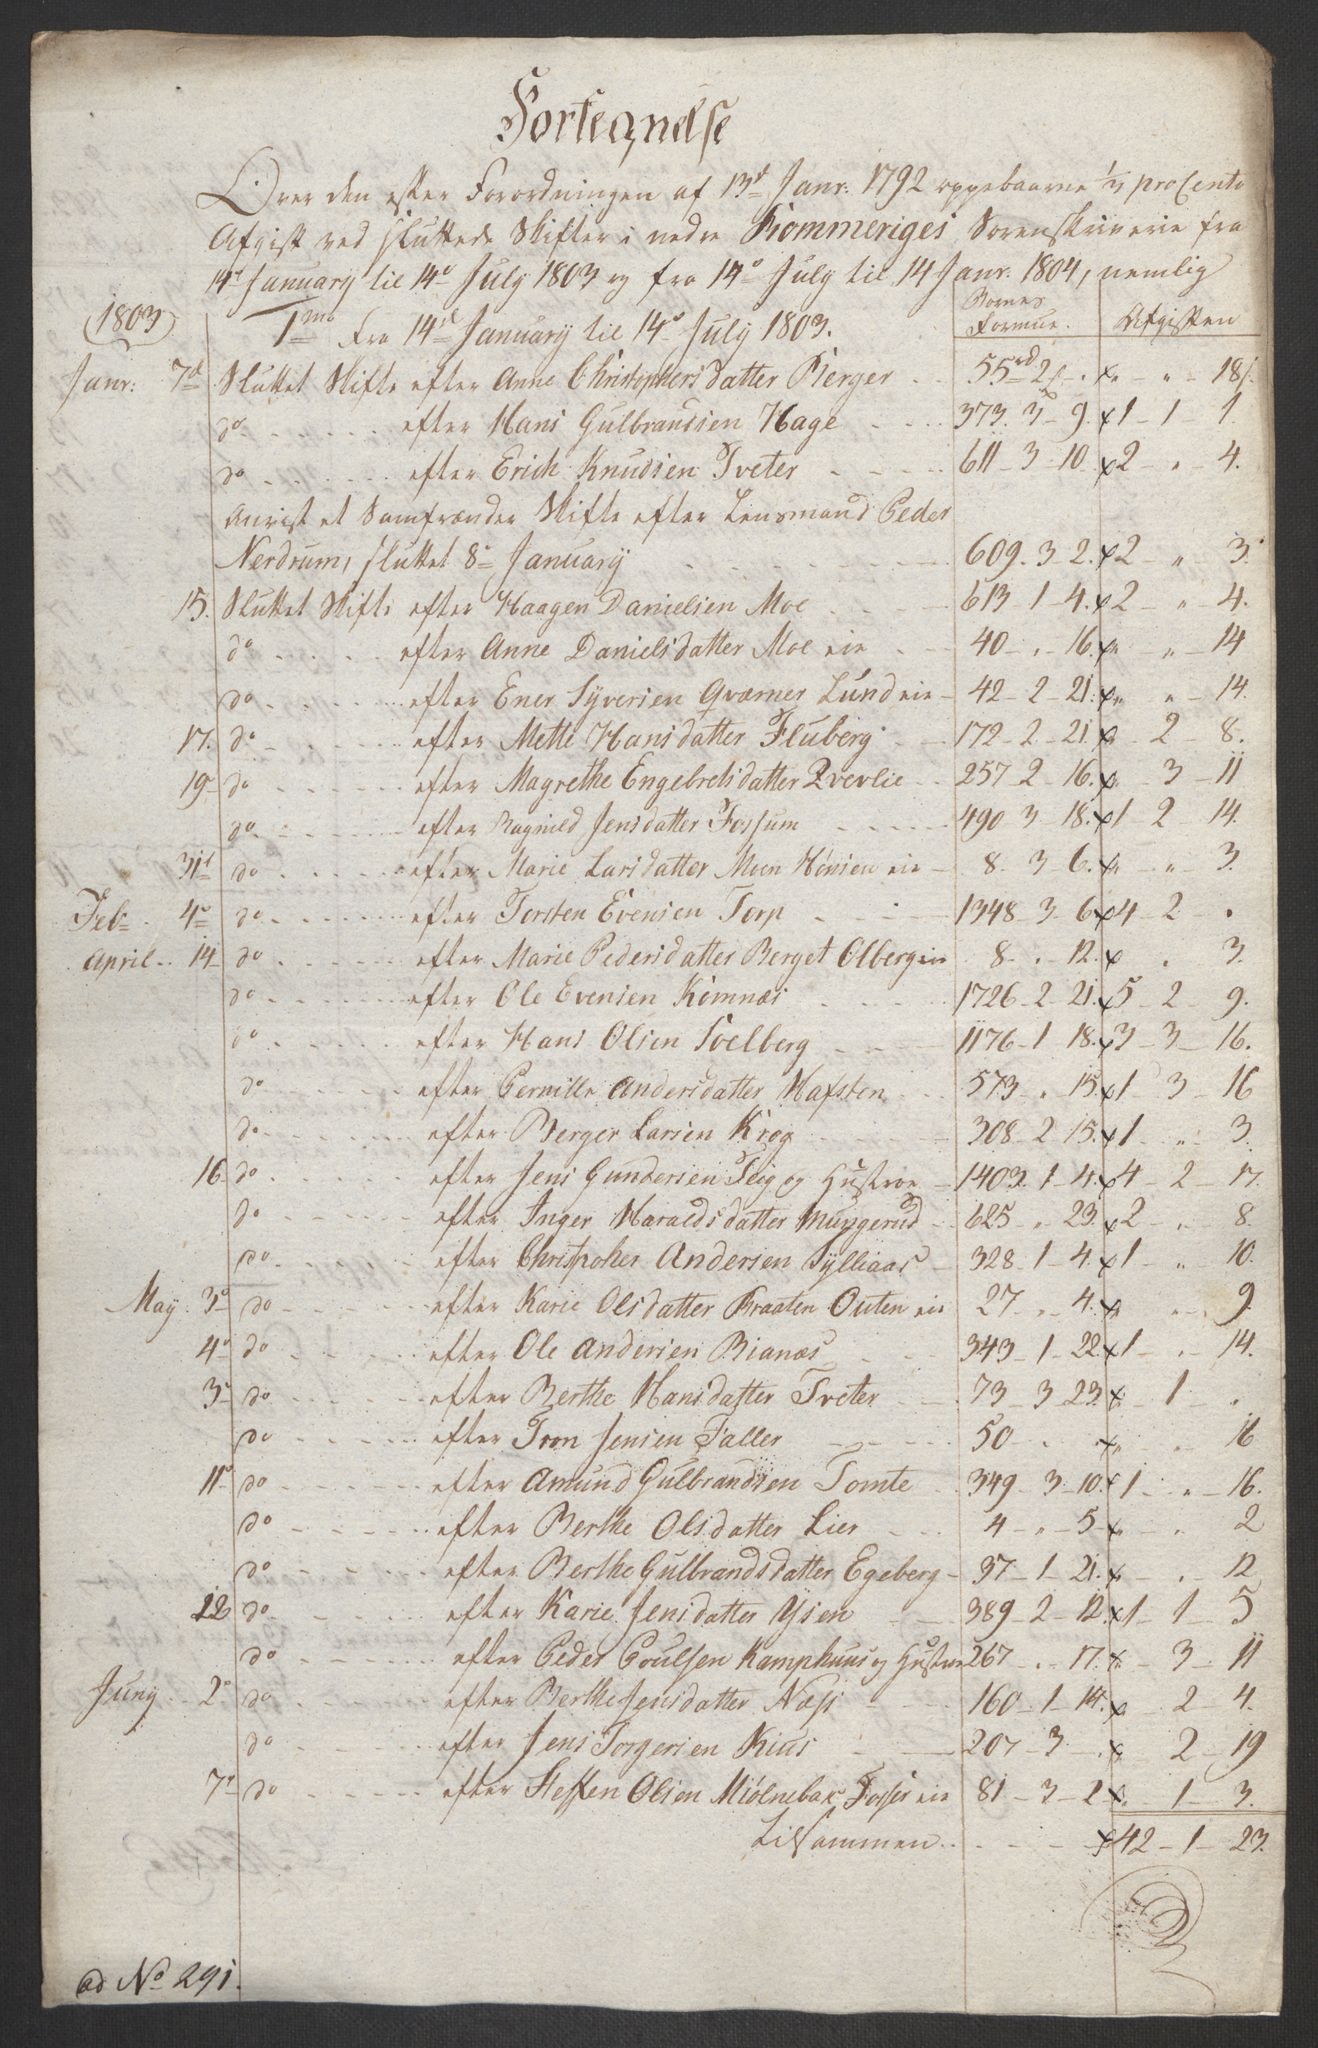 Fortegnelse
Over den efter Forordningen af 13d Janr. 1792 oppebaarne pro Cento
Afgift ved sluttede Skifter i nedre Rommeriges Sorenskriverie fra
14de January til 14de July 1803 og fra 14de July til 14 Janr. 1804, nemlig
1803 1mo fra 14de January til 14de July 1803. Boernes Formue. Afgiften
Janr. 7de Sluttet Skifte efter Anne Christophersdatter Berger 55rd 2 " " " 18
do efter Hans Gulbrandsen Hage 373. 3 9. 1 1 1
do efter Erich Knudsen Tveter 611 3 10. 2 " 4.
Anviist et Samfrænder Skifte efter Lensmand Peder
Nerdrum, sluttet 8de January 609. 3 2. 2 " 3.
15. Sluttet Skifte efter Haagen Danielsen Moe 613 1 4. 2 " 4.
do efter Anne Danielsdatter Moe eie 40 " 16. " " 14
do efter Ener Syversen Qværner Lund eie 42 2 21. " " 14.
17. do efter Mette Hansdatter Fluberg 172 2 21. " 2 8.
19 do efter Magrethe Engebretsdatter 257 2 16. " 3 11
do efter Ragnild Jensdatter Fossum 490 3 18. 1 2 14.
31d do efter Marie Larsdatter Moen Hønsen eie 8. 3 6. " " 3.
Feb. 4de do efter Torsten Evensen Torp 1348 3 6 4 2 .
April. 14 do efter Marie Pedersdatter Berget Olberg eie 8 . 12. . 3.
do efter Ole Evensen Komnæs 1726 2 21. 5 2 9.
do efter Hans Olsen Soelberg 1176 1 18. 3 3 16.
do efter Pernille Andersdatter Hafsten 573 . 15. 1 3 16
do efter Berger Larsen Krog 308 2 15. 1 " 3.
16 do efter Jens Gundersen Teig og Hustroe 1403. 1 4. 4 2 17.
do efter Inger Haraldsdatter Mungerud 625 " 23. 2 " 8.
do efter Christopher Andersen Sylliaas 328 1 4. 1 " 10.
May. 3de do efter Karie Olsdatter Braaten Outen eie 27 " 4. " " 9.
4de do efter Ole Andersen Bianæs 343 1 22. 1 " 14.
3de do efter Berthe Hansdatter Tveter 73 3 23. 1 .
do efter Tron Jensen Faller 50 . . " " 16
11de do efter Amund Gulbrandsen Tomte 349 3 10. 1 " 16.
do efter Berthe Olsdatter Lier 4 " 5 " " 2
do efter Berthe Gulbrandsdatter Egeberg 37 1 21. . 12
12 do efter Karie Jensdatter Ysen 389 2 12. 1 1 5
do efter Peder Poulsen Kamphuus og Hustroe 267 . 17. " 3 11
Juny. 2de do efter Berthe Jensdatter Næss 160 1 14. 2 4.
do efter Jens Torgersen Kius 207 3 . " 2 19
7de do efter Steffen Olsen Miølnebak Fosser eie 81 3 2 " 1 3.
Tilsammen 42 1 23.
ad No 291.